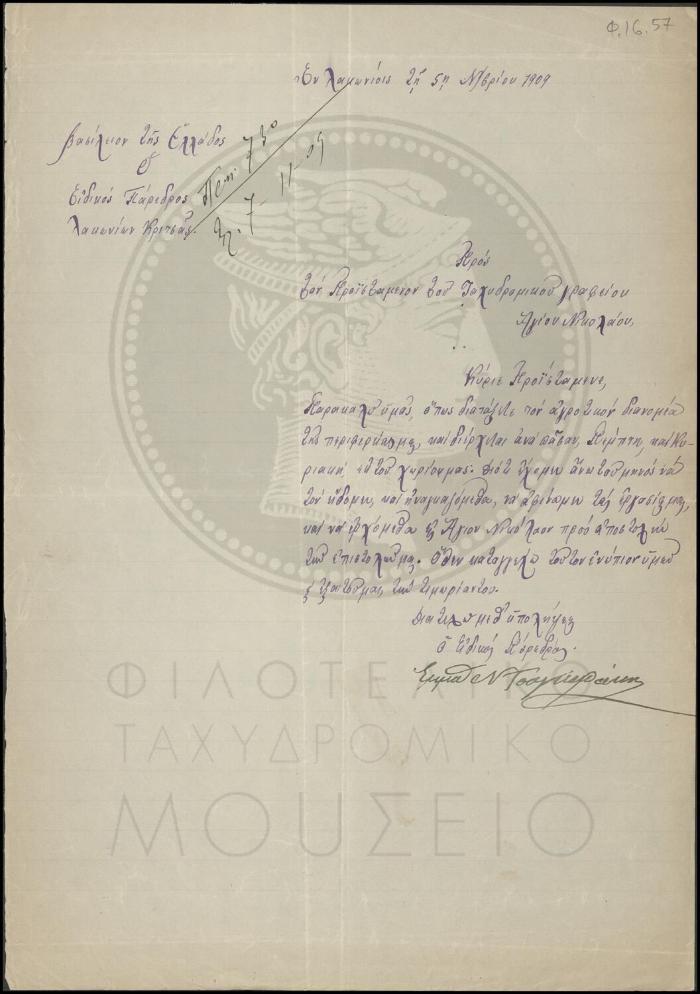 Φ.16.57
Ἐν Λακωνίοις τῇ 5ῃ Νβρίου 1909
Βασίλειον τῆς Ἑλλάδος
Εἰδικός Πάρεδρος
Λακωνίων Κριτσᾶς.
Πρωτ. 730
7-11-09
Πρός
τόν Προϊστάμενον τοῦ Ταχυδρομικοῦ γραφείου
Ἁγίου Νικολάου,
Κύριε Προϊστάμενε,
Παρακαλῶ ὑμᾶς, ὅπως διατάξητε τόν ἀγροτικόν διανομέα
τῆς περιφερείας μας, καί διέρχεται ἀνά πᾶσαν, Πέμπτη, καί Κυ-
ριακή ἐκ τοῦ χωρίου μας. διότι ἔχομεν ἄνω τοῦ μηνός νά
τόν ἴδομεν, καί ἀναγκαζόμεθα, νά ἀφίνωμεν τάς ἐργασίας μας,
καί νά ἐρχόμεθα εἰς Ἅγιον Νικόλαον πρός ἀποστολήν
τῶν ἐπιστολῶν μας. Ὅθεν καταγγέλω τοῦτον ἐνώπιον ὑμῶν
καί ἐξαιτοῦμαι τήν τιμωρίαν του.
Διατελῶ μεθ' ὑπολήψεως
Ὁ Εἰδικός Πάρεδρος.
ΦΙΛΟΤΕΛΙΚΟ
ΤΑΧΥΔΡΟΜΙΚΟ
ΜΟΥΣΕΙΟ